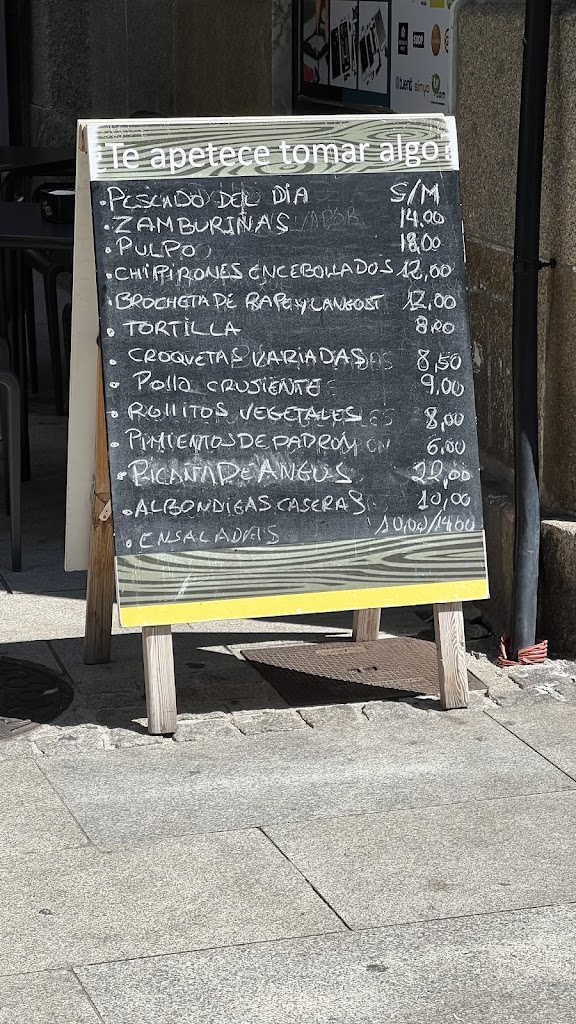 ¿Te apetece tomar algo?
• PESCADO DEL DIA S/M
• ZAMBURIÑAS 14,00
• PULPO 18,00
• CHIPIRONES ENCEBOLLADOS 12,00
• BROCHETA DE RAPE Y LANGOST 12,00
• TORTILLA 8,00
• CROQUETAS VARIADAS 8,50
• POLLO CRUJIENTE 9,00
• ROLLITOS VEGETALES 8,00
• PIMIENTOS DE PADRÓN 6,00
• PICAÑA DE ANGUS 22,00
• ALBONDIGAS CASERAS 10,00
• ENSALADAS 10,00/14,00